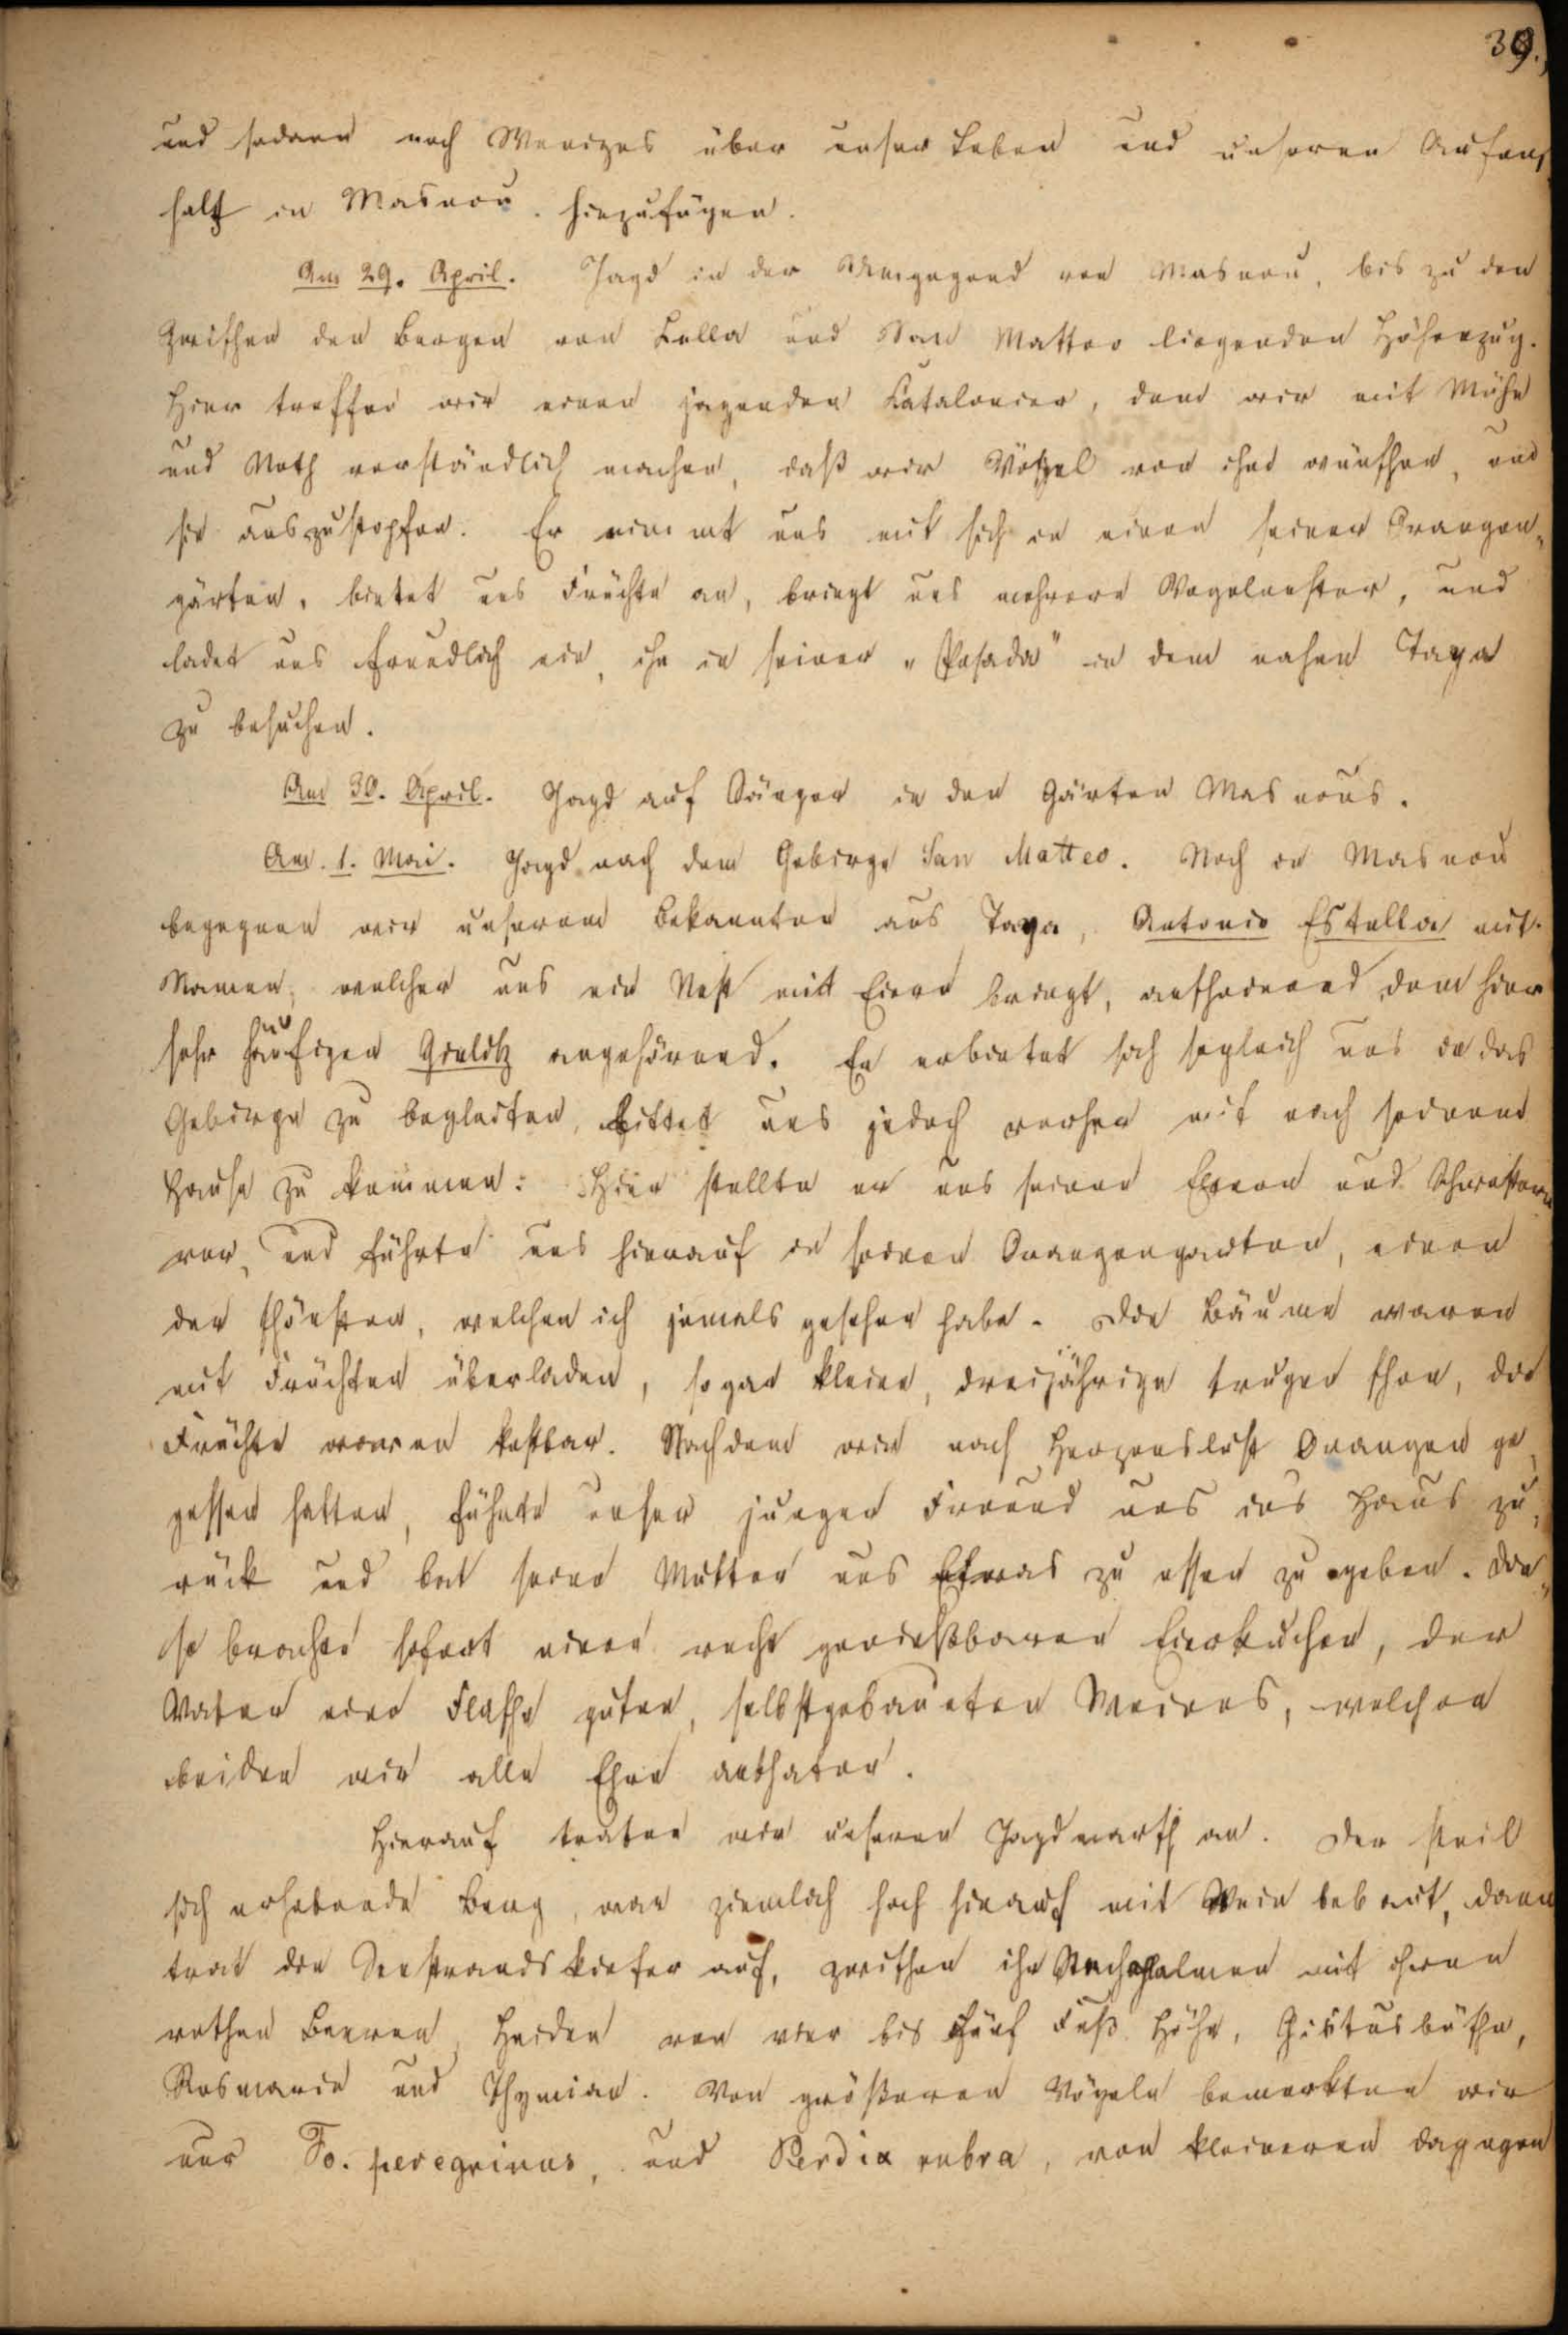 39.
und sodann noch Weniges über unser Leben und unseren Aufent
halt in Masnou hinzufügen.
Am 29. April. Jagd in der Umgegend von Masnou, bis zu den
zwischen den Bergen von Lella und San Matteo liegenden Höhenzug.
Hier treffen wir einen jagenden Catalonier, dem wir mit Mühe
und Noth verständlich machen, daß wir Vögel von ihm wünschen, um
sie auszustopfen. Er nimmt uns mit sich in einen seiner Orangen„
gärten, bietet uns Früchte an, bringt uns mehrere Vogelnester, und
ladet uns freundlich ein, ihn in seiner „Posada" in dem nahen Taya
zu besuchen.
Am 30. April. Jagd auf Sänger in den Gärten Masnous.
Am 1. Mai. Jagd nach dem Gebirge San Matteo. Noch in Masnou
begegnen wir unserem Bekannten aus Taya, Antonio Estalla mit
Namen, welcher uns ein Nest mit Eiern bringt, anscheinend dem hier
sehr häufigen Girlitz angehörend. Er erbietet sich sogleich uns in das
Gebirge zu begleiten, bittet uns jedoch vorher mit nach seinem
Hause zu kommen: Hier stellte er uns seinen Eltern und Schwestern
vor, und führte uns hierauf in seinen Orangengarten, einen
der schönsten, welchen ich jemals gesehen habe. Die Bäume waren
mit Früchten überladen, sogar kleine, dreijährige trugen schon, die
Früchte waren kostbar. Nachdem wir nach Herzenslust Orangen ge„
gessen hatten, führte unser junger Freund uns ins Haus zu„
rück und bat seine Mutter uns Etwas zu essen zu geben. Die„
se brachte sofort einen recht genießbaren Eierkuchen, der
Vater eine Flasche guten, selbstgebauten Weines, welchen
beiden wir alle Ehre anthaten.
Hierauf traten wir unseren Jagdmarsch an. Der steil
sich erhebende Berg, war ziemlich hoch hinauf mit Wein bebaut, dann
trat die Seestrandskiefer auf, zwischen ihr Stechpalmen mit ihren
rothen Beeren, Heiden von vier bis fünf Fuß Höhe, Cistusbüsche,
Rosmarin und Thymian. Von größeren Vögeln bemerkten wir
nur Fo. peregrinus, und Perdix rubra, von kleineren dagegen